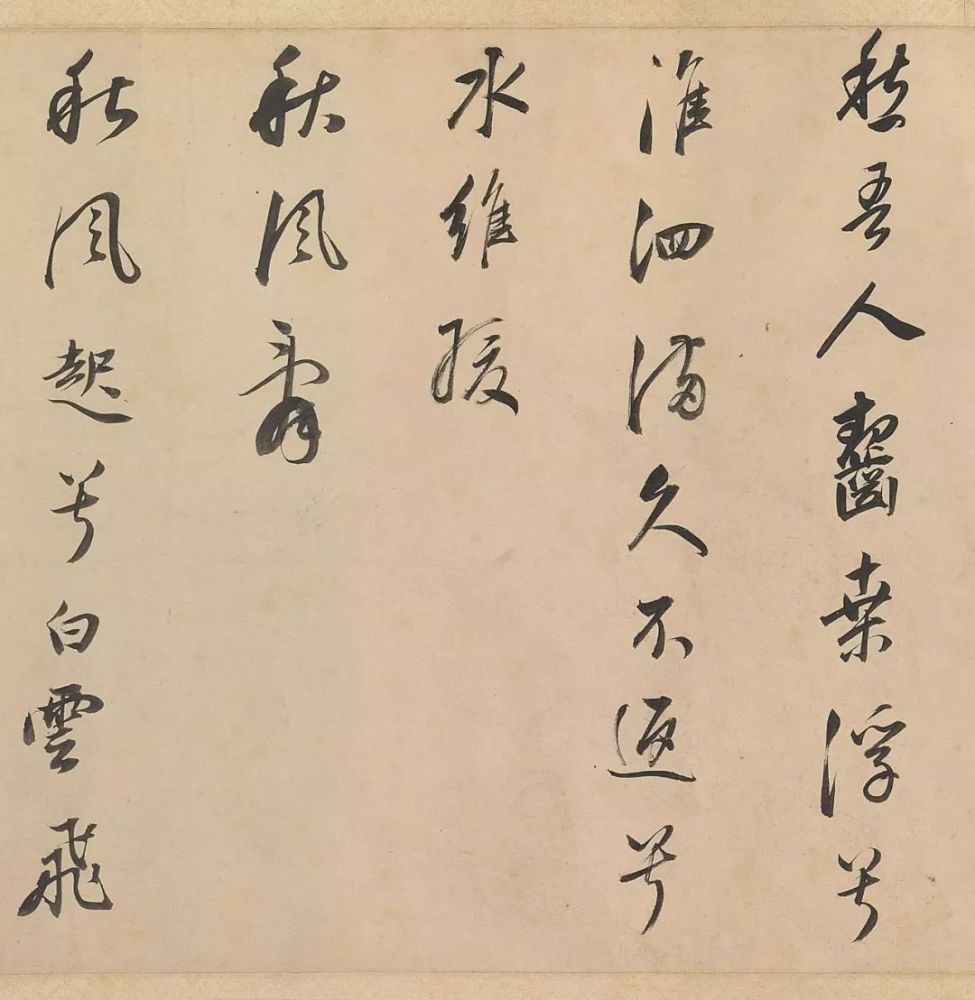 愁吾人齧桑浮兮
淮泗滿久不返兮
水維緩
秋風辭
秋風起兮白雲飛